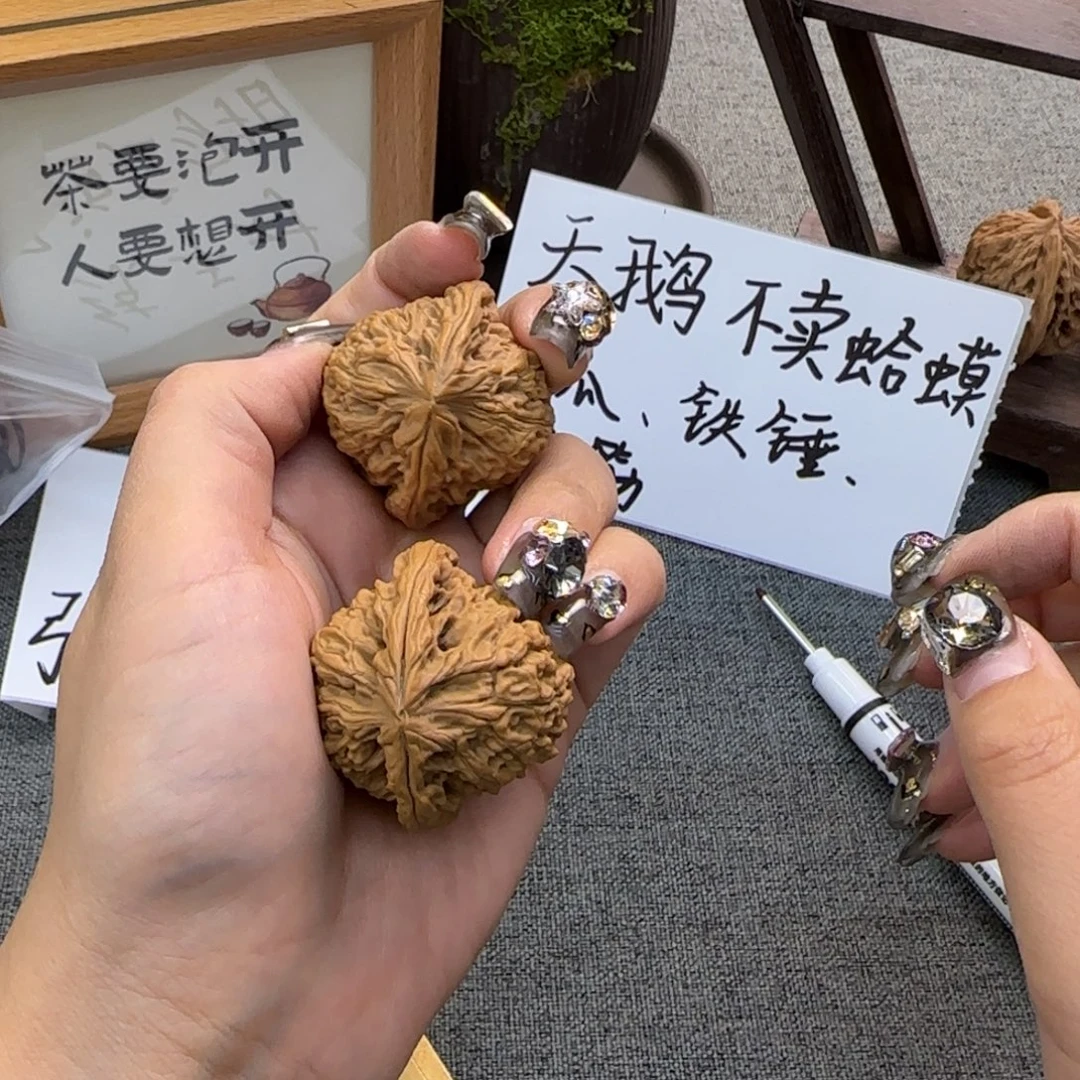 茶要泡开
人要想开
天鹅不卖蛤蟆
瓜、铁锤、